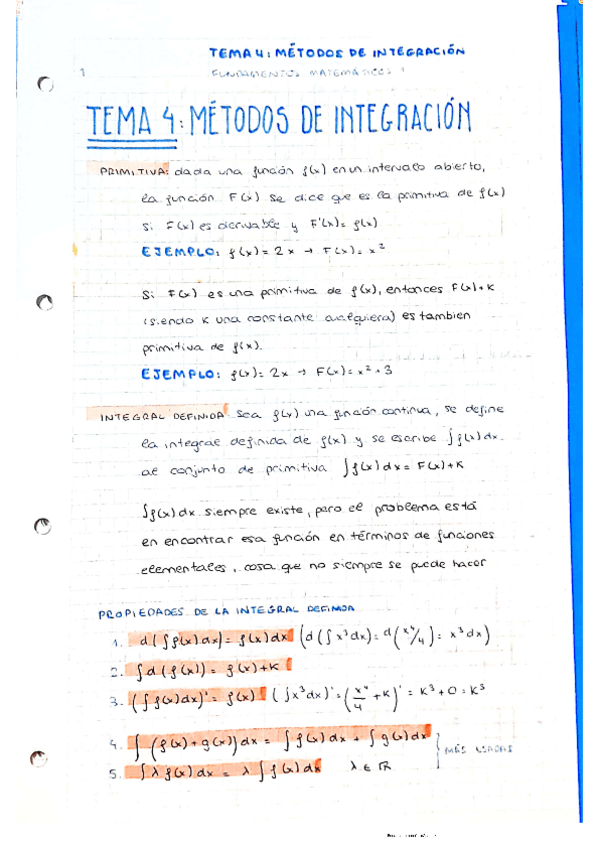 TEMA 4: MÉTODOS DE INTEGRACIÓN
1 FUNDAMENTOS MATEMÁTICOS 1
TEMA 4: MÉTODOS DE INTEGRACIÓN
PRIMITIVA: dada una función f(x) en un intervalo abierto,
la función F(x) se dice que es la primitiva de f(x)
si F(x) es derivable y F'(x)= f(x)
EJEMPLO: f(x)= 2x → F(x)= x²
Si F(x) es una primitiva de f(x), entonces F(x)+K
(siendo K una constante cualquiera) es tambien
primitiva de f(x).
EJEMPLO: f(x)= 2x → F(x)= x²+3
INTEGRAL DEFINIDA: Sea f(x) una función continua, se define
la integral definida de f(x) y se escribe ∫f(x)dx
al conjunto de primitiva ∫f(x)dx = F(x)+K
∫f(x)dx siempre existe, pero el problema está
en encontrar esa función en términos de funciones
elementales, cosa que no siempre se puede hacer
PROPIEDADES DE LA INTEGRAL DEFINIDA
1. d(∫f(x)dx)= f(x)dx (d(∫x³dx)= d(x⁴/4)= x³dx)
2. ∫d(f(x))= f(x)+K
3. (∫f(x)dx)'= f(x) (∫x³dx)'= (x⁴/4 +K)' = K³+0=K³
4. ∫(f(x)+g(x))dx = ∫f(x)dx + ∫g(x)dx
MÁS USADAS
5. ∫λf(x)dx = λ∫f(x)dx λ∈ℝ